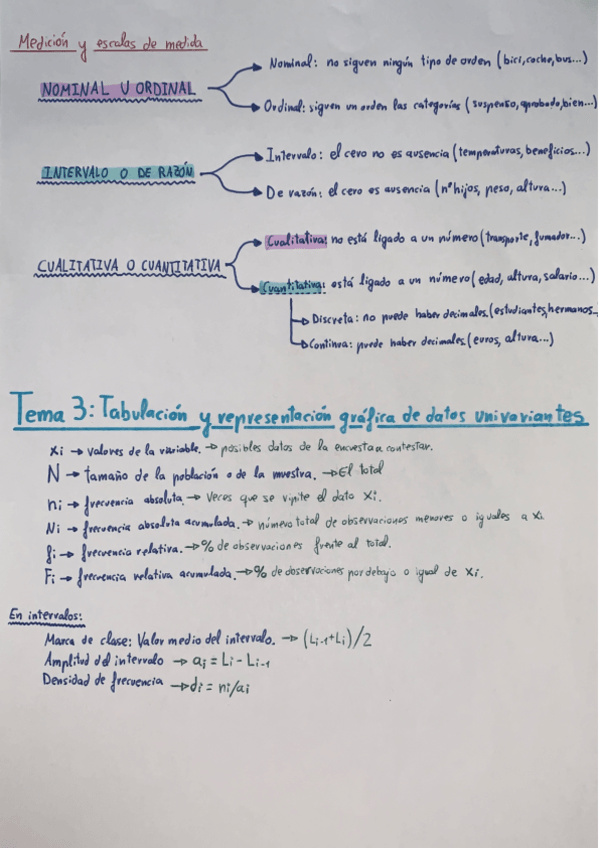 Medición y escalas de medida
Nominal: no siguen ningún tipo de orden (bici, coche, bus...)
NOMINAL U ORDINAL
Ordinal: siguen un orden las categorías (suspenso, aprobado, bien...)
Intervalo: el cero no es ausencia (temperaturas, beneficios...)
INTERVALO O DE RAZÓN
De razón: el cero es ausencia (nº hijos, peso, altura...)
Cualitativa: no está ligado a un número (transporte, fumador...)
CUALITATIVA O CUANTITATIVA
Cuantitativa: está ligado a un número (edad, altura, salario...)
Discreta: no puede haber decimales. (estudiantes, hermanos...
Continua: puede haber decimales. (euros, altura...)
Tema 3: Tabulación y representación gráfica de datos univariantes
xi → valores de la variable. → posibles datos de la encuesta a contestar.
N → tamaño de la población o de la muestra. → El total
ni → frecuencia absoluta → Veces que se repite el dato xi.
Ni → frecuencia absoluta acumulada. → número total de observaciones menores o iguales a xi
fi → frecuencia relativa. → % de observaciones frente al total.
Fi → frecuencia relativa acumulada. → % de observaciones por debajo o igual de xi.
En intervalos:
Marca de clase: Valor medio del intervalo. → (Li-1+Li)/2
Amplitud del intervalo → ai = Li - Li-1
Densidad de frecuencia → di = ni/ai